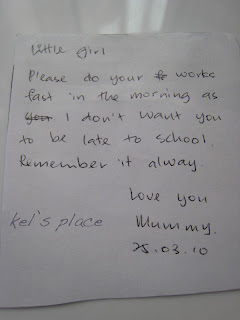 Little girl
Please do your works
fast in the morning as
I don't want you
to be late to school.
Remember it alway.
Love you
Kel's place Mummy.
25.03.10